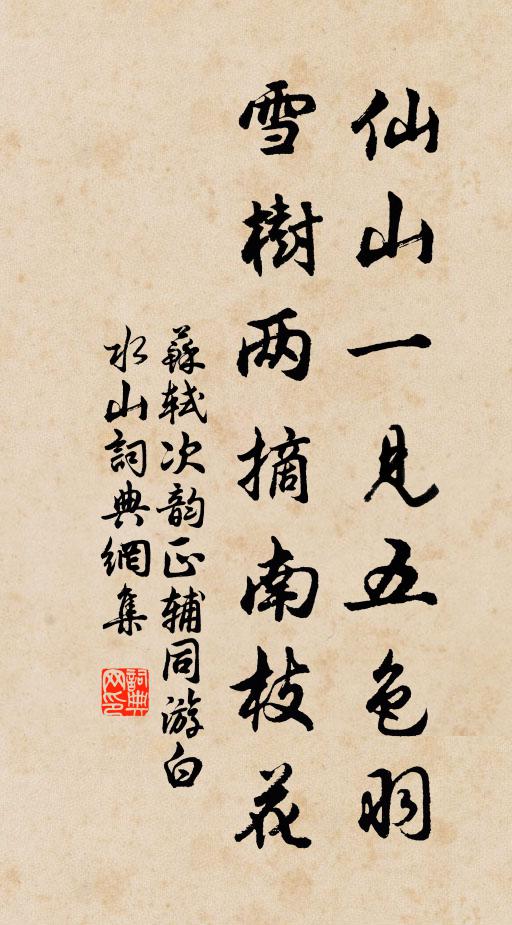 仙山一見五色羽
雪樹两摘南枝花
蘇軾次韵正辅同游白
水山詞典網集
詞典
网印